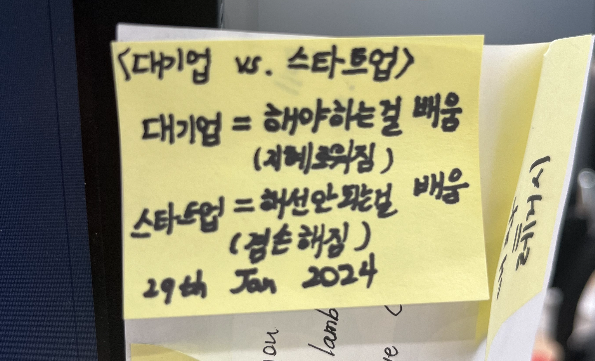 <대기업 vs. 스타트업>
대기업 = 해야하는걸 배움
(지혜로워짐)
스타트업 = 해선안되는걸 배움
(겸손해짐)
29th Jan 2024
레거시
lamb